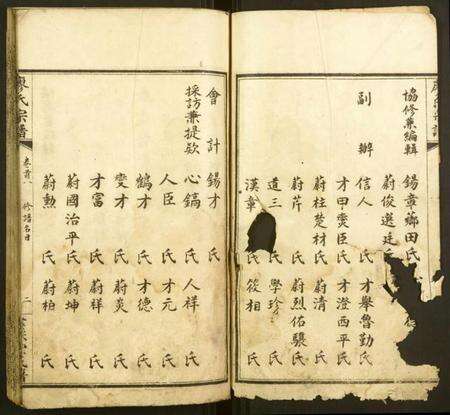 協修兼編輯
錫章薌田氏
蔚俊選廷氏
副辦
信人 才舉魯勤氏
才甲 臣氏 才澄西平氏
蔚柱楚材氏 蔚清氏
蔚芹氏 蔚烈佑驥氏
道三氏 學珍氏
漢章 筱相氏
會計
錫才氏
採訪兼提欵
心鎬氏 人祥氏
人臣氏 才元氏
鶴才氏 才德氏
雯才氏 蔚炎氏
才富氏 蔚祥氏
蔚國治平氏 蔚坤氏
蔚勳氏 蔚柏氏
廖氏宗譜
卷首八
修譜名目
二